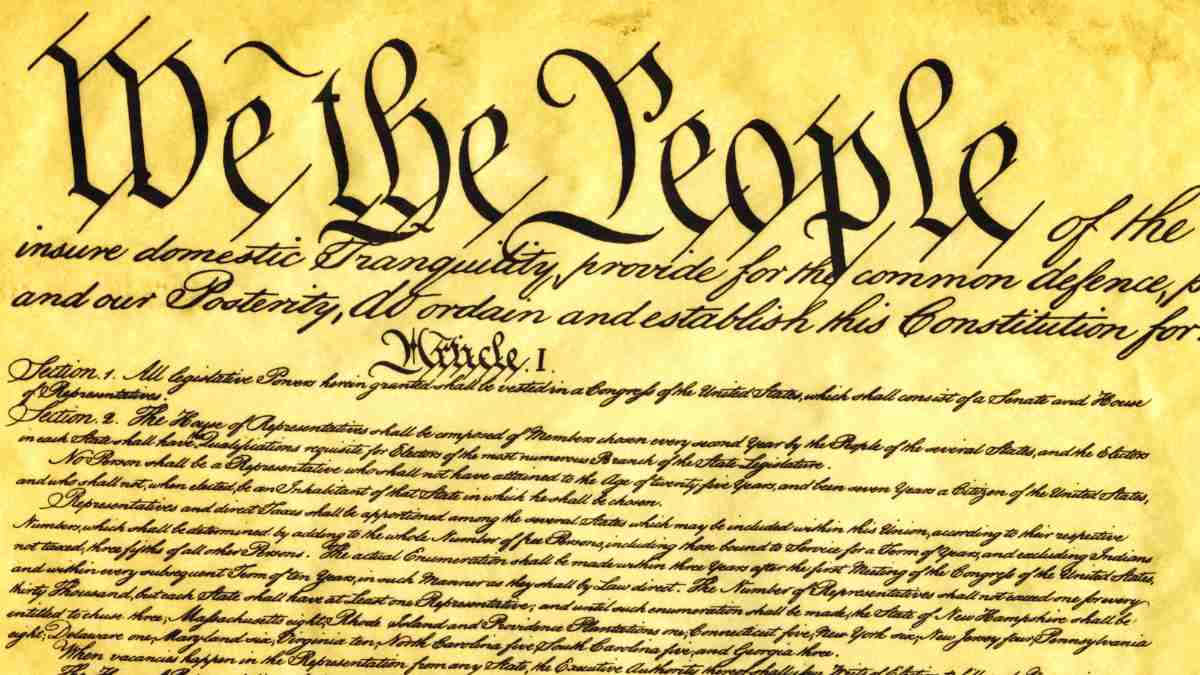 We the People of the
insure domestic Tranquility, provide for the common defence, p
and our Posterity, do ordain and establish this Constitution for
Article. I.
Section. 1. All legislative Powers herein granted shall be vested in a Congress of the United States, which shall consist of a Senate and House
of Representatives.
Section. 2. The House of Representatives shall be composed of Members chosen every second Year by the People of the several States, and the Electors
in each State shall have Qualifications requisite for Electors of the most numerous Branch of the State Legislature.
No Person shall be a Representative who shall not have attained to the Age of twenty five Years, and been seven Years a Citizen of the United States,
and who shall not, when elected, be an Inhabitant of that State in which he shall be chosen.
Representatives and direct Taxes shall be apportioned among the several States which may be included within this Union, according to their respective
Numbers, which shall be determined by adding to the whole Number of free Persons, including those bound to Service for a Term of Years, and excluding Indians
not taxed, three fifths of all other Persons. The actual Enumeration shall be made within three Years after the first Meeting of the Congress of the United States,
and within every subsequent Term of ten Years, in such Manner as they shall by Law direct. The Number of Representatives shall not exceed one for every
thirty Thousand, but each State shall have at Least one Representative; and until such enumeration shall be made, the State of New Hampshire shall be
entitled to chuse three, Massachusetts eight, Rhode Island and Providence Plantations one, Connecticut five, New York six, New Jersey four, Pennsylvania
eight, Delaware one, Maryland six, Virginia ten, North Carolina five South Carolina five, and Georgia three.
When vacancies happen in the Representation from any State, the Executive Authority thereof shall